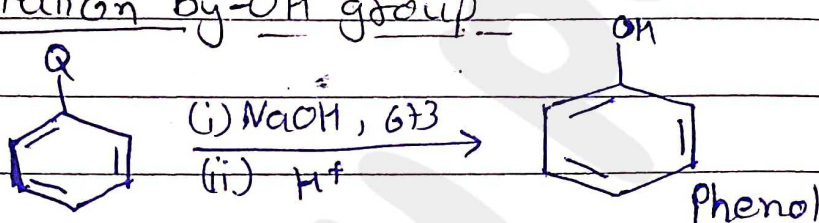 by-OH group
Q
OH
(i) NaOH, 673
(ii) H+
Phenol